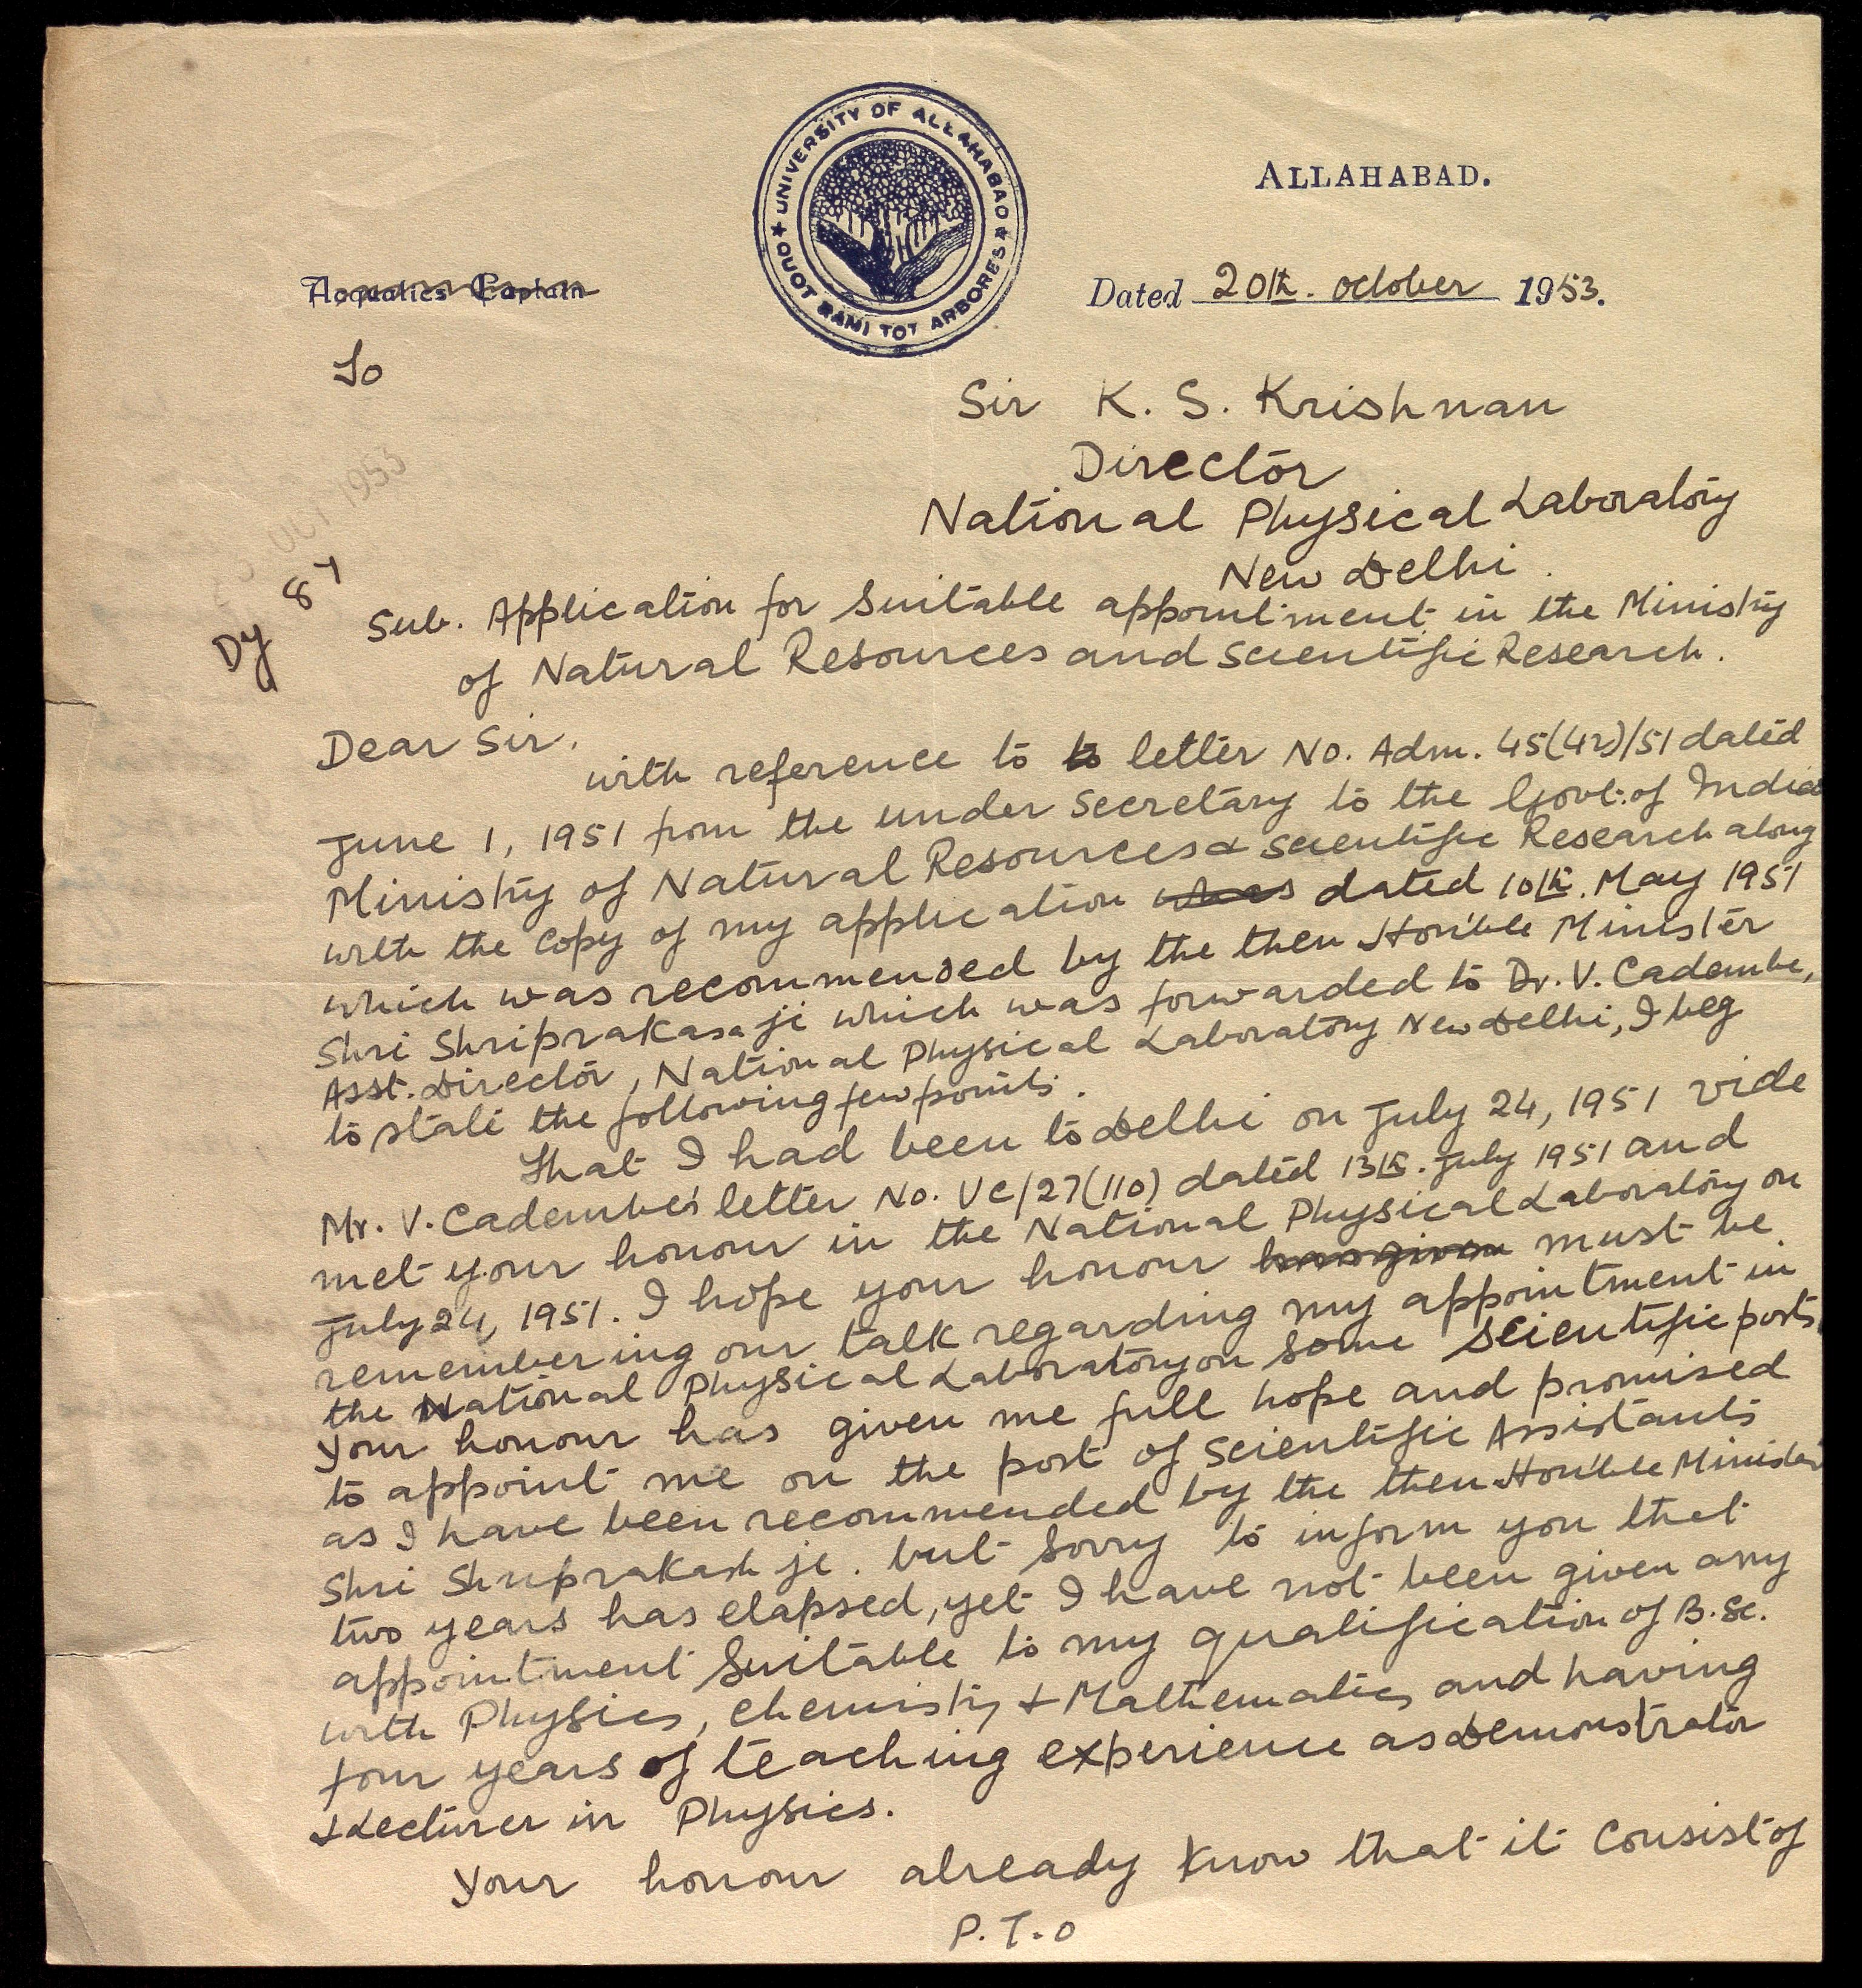 UNIVERSITY OF ALLAHABAD
QUOT RAMI TOT ARBORES
ALLAHABAD.
Acquatics Captain
Dated 20th. October 1953.
To
Sir K. S. Krishnan
Director
National Physical Laboratory
New Delhi.
OCT 1953
Dy 87
Sub. Application for suitable appointment in the Ministry
of Natural Resources and Scientific Research.
Dear Sir,
with reference to to letter No. Adm. 45(42)/51 dated
June 1, 1951 from the under Secretary to the Govt. of India
Ministry of Natural Resources & Scientific Research along
with the copy of my application dated 10th. May 1951
which was recommended by the then Hon'ble Minister
Shri Shriprakasa ji which was forwarded to Dr. V. Cadambe,
Asst. Director, National Physical Laboratory New Delhi, I beg
to state the following few points.
That I had been to Delhi on July 24, 1951 vide
Mr. V. Cadembe's letter No. VC/27(110) dated 13th. July 1951 and
met your honour in the National Physical Laboratory on
July 24, 1951. I hope your honour has given must be
remembering our talk regarding my appointment in
the National Physical Laboratory on some scientific posts.
Your honour has given me full hope and promised
to appoint me on the post of Scientific Assistants
as I have been recommended by the then Hon'ble Minister
Shri Shriprakash ji. but sorry to inform you that
two years has elapsed, yet I have not been given any
appointment suitable to my qualification of B.Sc.
with Physics, Chemistry & Mathematics and having
four years of teaching experience as Demonstrator
& Lecturer in Physics.
Your honour already know that it consist of
P.T.O